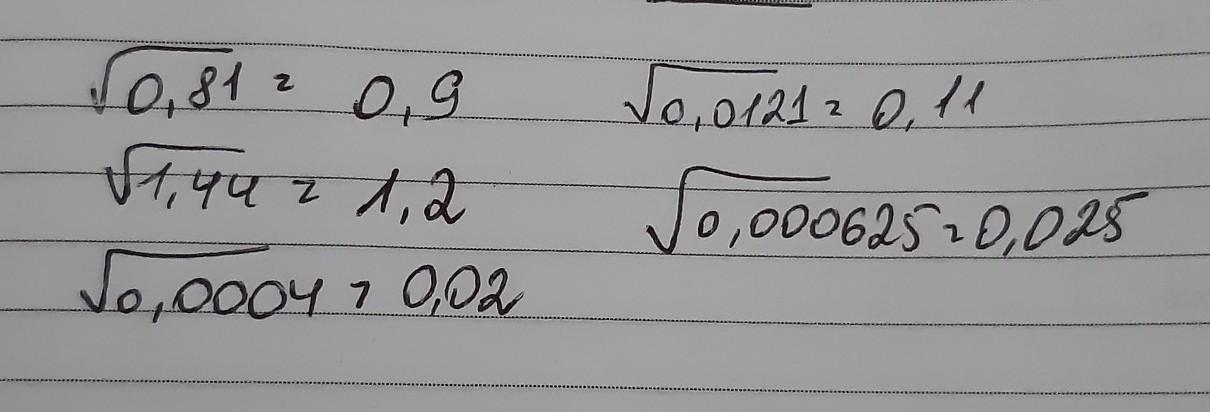 √0,81 = 0,9
√1,44 = 1,2
√0,0004 = 0,02
√0,0121 = 0,11
√0,000625 = 0,025